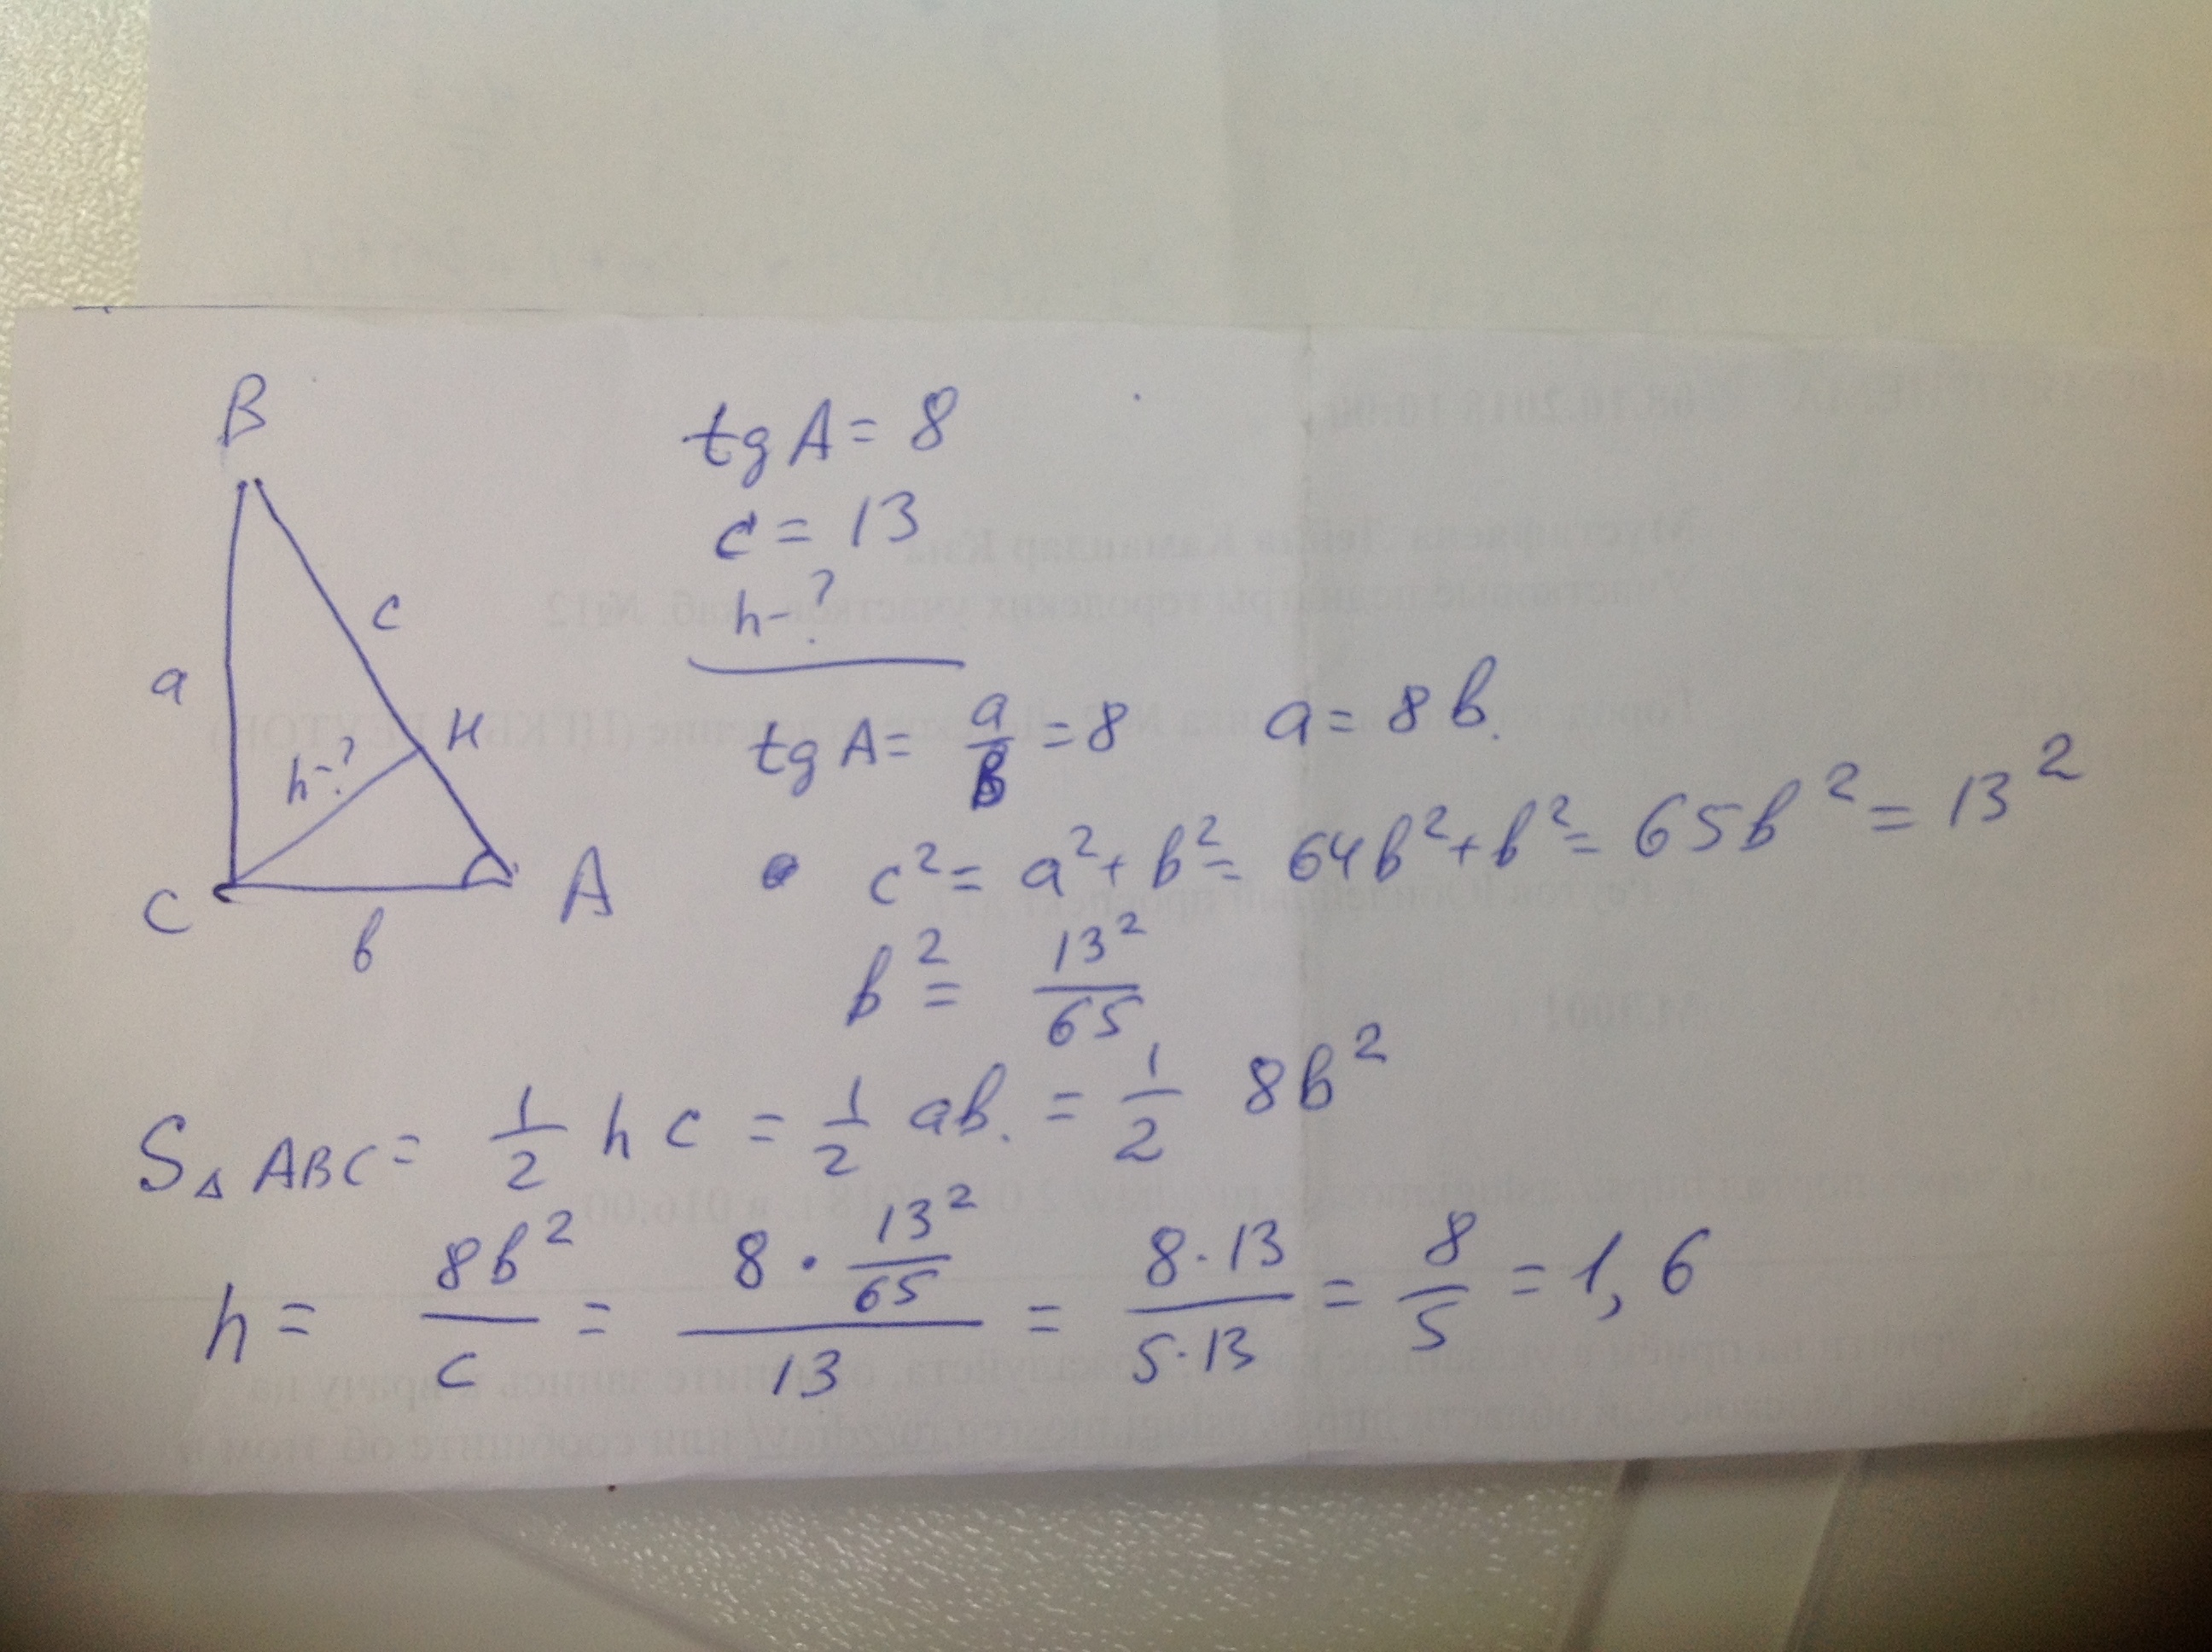 B
a
c
H
h-?
C
b
A
tg A = 8
c = 13
h-?
tg A = a/b = 8 a = 8b.
c² = a² + b² = 64b² + b² = 65b² = 13²
b² = 13²/65
S△ABC = 1/2 h c = 1/2 ab. = 1/2 8b²
h = 8b²/c = 8 · 13²/65 / 13 = 8·13/5·13 = 8/5 = 1,6